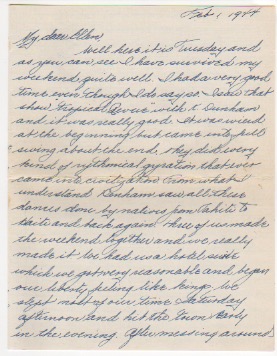 Feb. 1, 1944
My dear Ellen,
Well here it is Tuesday and
as you can see I have survived my
weekend quite well. I had a very good
time even though I do say so. I saw that
show "Tropical Revue" with K Dunham
and it was really good. It was weird
at the beginning but came into full
swing about the end. They did every
kind of rythmical gyration that ever
came into civilization. From what I
understand Dunham saw all these
dances done by natives from Tahiti to
Haiti and back again. Three of us made
the weekend together and we really
made it. We had us a hotel suite
which we got very reasonable and began
our liberty feeling like kings. We
slept most of our time Saturday
afternoon and hit the town early
in the evening. After messing around